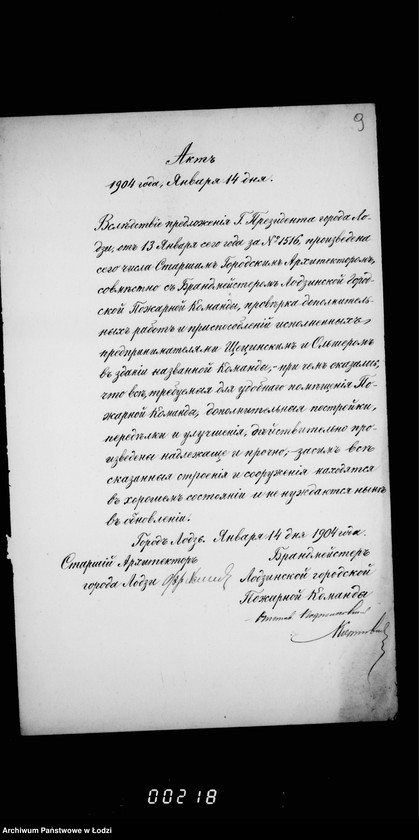 9
Актъ
1904 года, Января 14 дня.
Вслѣдствіе предложенія Г. Президента города Ло-
дзи, отъ 13 Января сего года за № 1516, произведена
сего числа Старшимъ Городскимъ Архитекторомъ,
совмѣстно съ Брандмейстеромъ Лодзинской Город-
ской Пожарной Команды, провѣрка дополнитель-
ныхъ работъ и приспособленій исполненныхъ
предпринимателями Щецинскимъ и Ольшеромъ
въ зданіи названной Команды, – при чемъ оказалось,
что всѣ, требуемыя для удобнаго помѣщенія По-
жарной Команды, дополнительныя постройки,
передѣлки и улучшенія, дѣйствительно про-
изведены надлежаще и прочно, – засимъ всѣ
сказанныя строенія и сооруженія находятся
въ хорошемъ состояніи и не нуждаются нынѣ
въ обновленіи.
Городъ Лодзь. Января 14 дня 1904 года.
Старшій Архитекторъ
города Лодзи
Брандмейстеръ
Лодзинской городской
Пожарной Команды
00218
Archiwum Państwowe w Łodzi